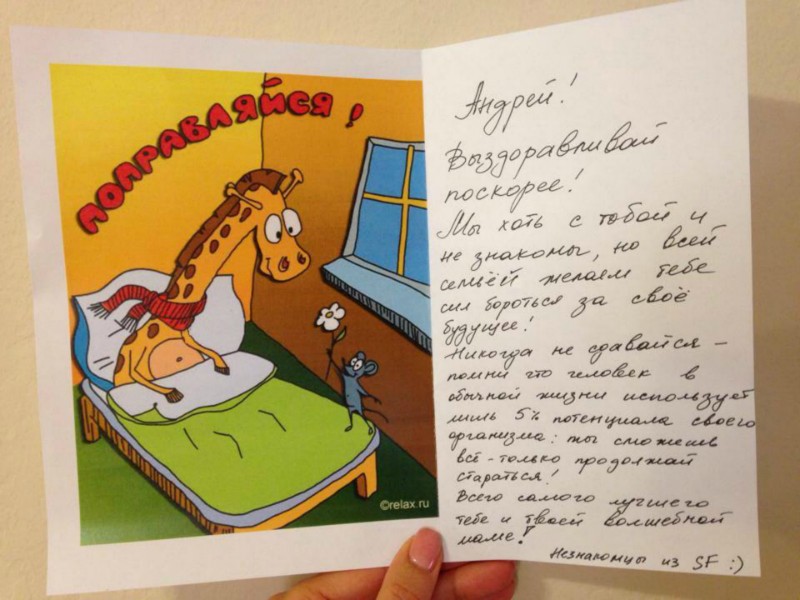 ПОПРАВЛЯЙСЯ!
©relax.ru
Андрей!
Выздоравливай
поскорее!
Мы хоть с тобой и
не знакомы, но всей
семьёй желаем тебе
сил бороться за своё
будущее!
Никогда не сдавайся –
помни что человек в
обычной жизни использует
лишь 5% потенциала своего
организма: ты сможешь
всё - только продолжай
стараться!
Всего самого лучшего
тебе и твоей волшебной
маме!
Незнакомцы из SF :)